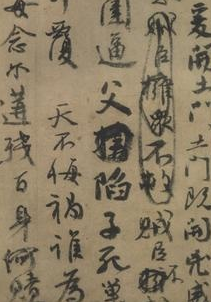 爰開土門土門既開兇威
賊臣擁衆不救賊臣不
圍逼父陷子死巢
卵覆天不悔禍誰為
毒念尔遘殘百身何贖